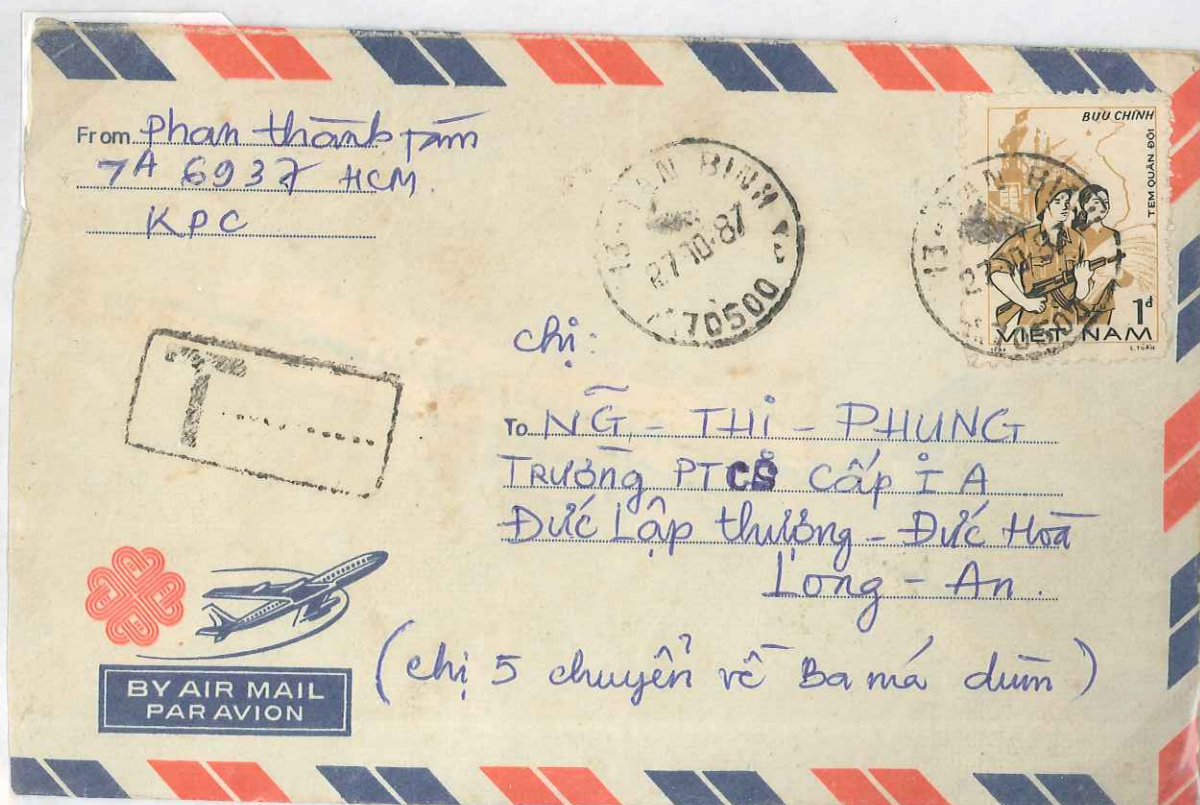 From Phan thành Tâm
7A 6937 HCM.
KPC
13-TAN BINH
27.10.87
70500
BƯU CHÍNH
TEM QUÂN ĐỘI
1đ
VIỆT NAM
L.TUẤN
T
chị:
To NG̃ - THỊ - PHỤNG
TRƯỜNG PTCS Cấp I A
Đức Lập thượng - Đức Hoà
Long - An.
(chị 5 chuyển về Ba má dùm)
BY AIR MAIL
PAR AVION